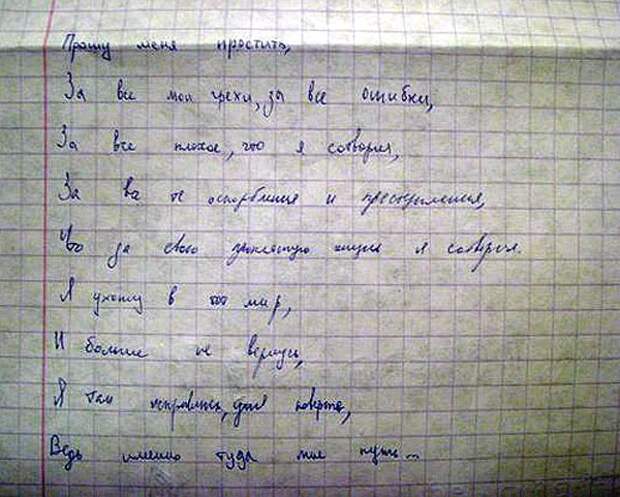 Прошу меня простить,
За все мои грехи, за все ошибки,
За все плохое, что я сотворил,
За все те оскорбления и преступления,
Что за свою проклятую жизнь я сотворил.
Я ухожу в тот мир,
И больше не вернусь,
Я там исправлюсь, уж поверьте,
Ведь именно туда мне путь...